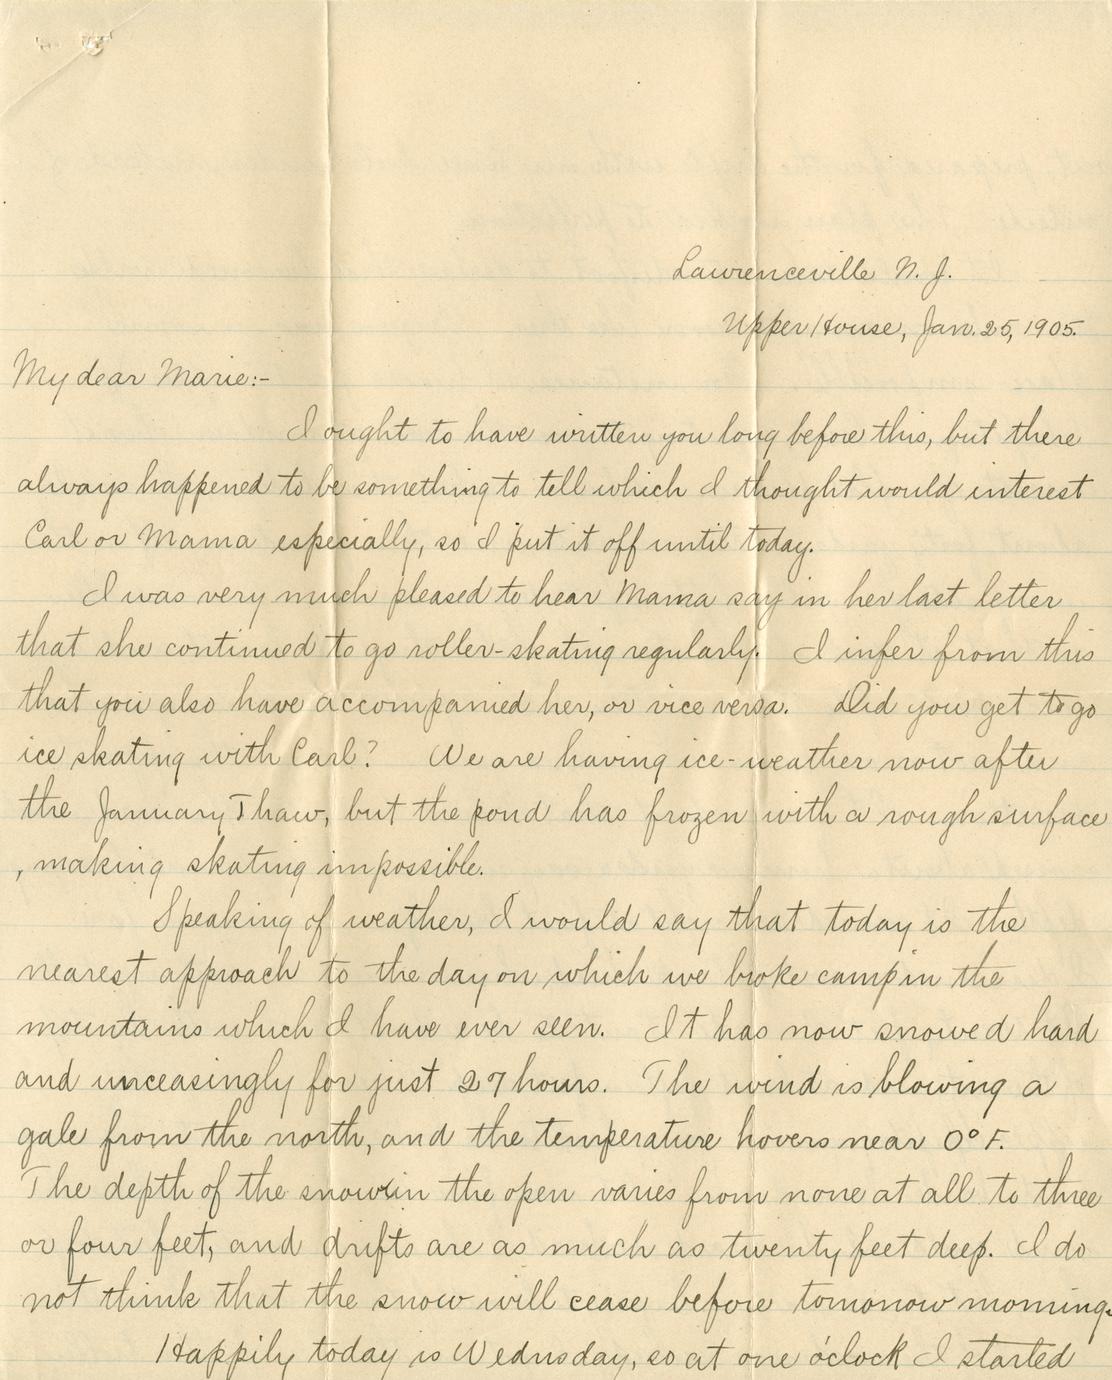 Lawrenceville N. J.
Upper House, Jan. 25, 1905.
My dear Marie:-
I ought to have written you long before this, but there
always happened to be something to tell which I thought would interest
Carl or Mama especially, so I put it off until today.
I was very much pleased to hear Mama say in her last letter
that she continued to go roller-skating regularly. I infer from this
that you also have accompanied her, or vice versa. Did you get to go
ice skating with Carl? We are having ice-weather now after
the January Thaw, but the pond has frozen with a rough surface
, making skating impossible.
Speaking of weather, I would say that today is the
nearest approach to the day on which we broke camp in the
mountains which I have ever seen. It has now snowed hard
and unceasingly for just 27 hours. The wind is blowing a
gale from the north, and the temperature hovers near 0° F.
The depth of the snow in the open varies from none at all to three
or four feet, and drifts are as much as twenty feet deep. I do
not think that the snow will cease before tomorrow morning.
Happily today is Wednesday, so at one o'clock I started